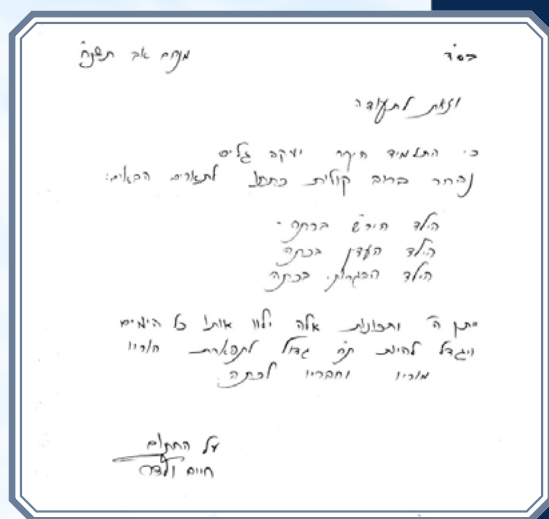 בס"ד
מנחם אב תשנ"ח
וזאת לתעודה
כי התלמיד היקר יעקב גליס
נבחר ברוב קולות כחתן לתארים הבאים:
הילד הירא"ש בכתה -
הילד העדין בכתה
הילד הבגרותי בכתה
יתן ה' ותכונות אלה ילוו אותו כל הימים
ויגדל להיות ת"ח גדול לתפארת הוריו
מוריו וחבריו לכתה
על החתום
חיים ולדר